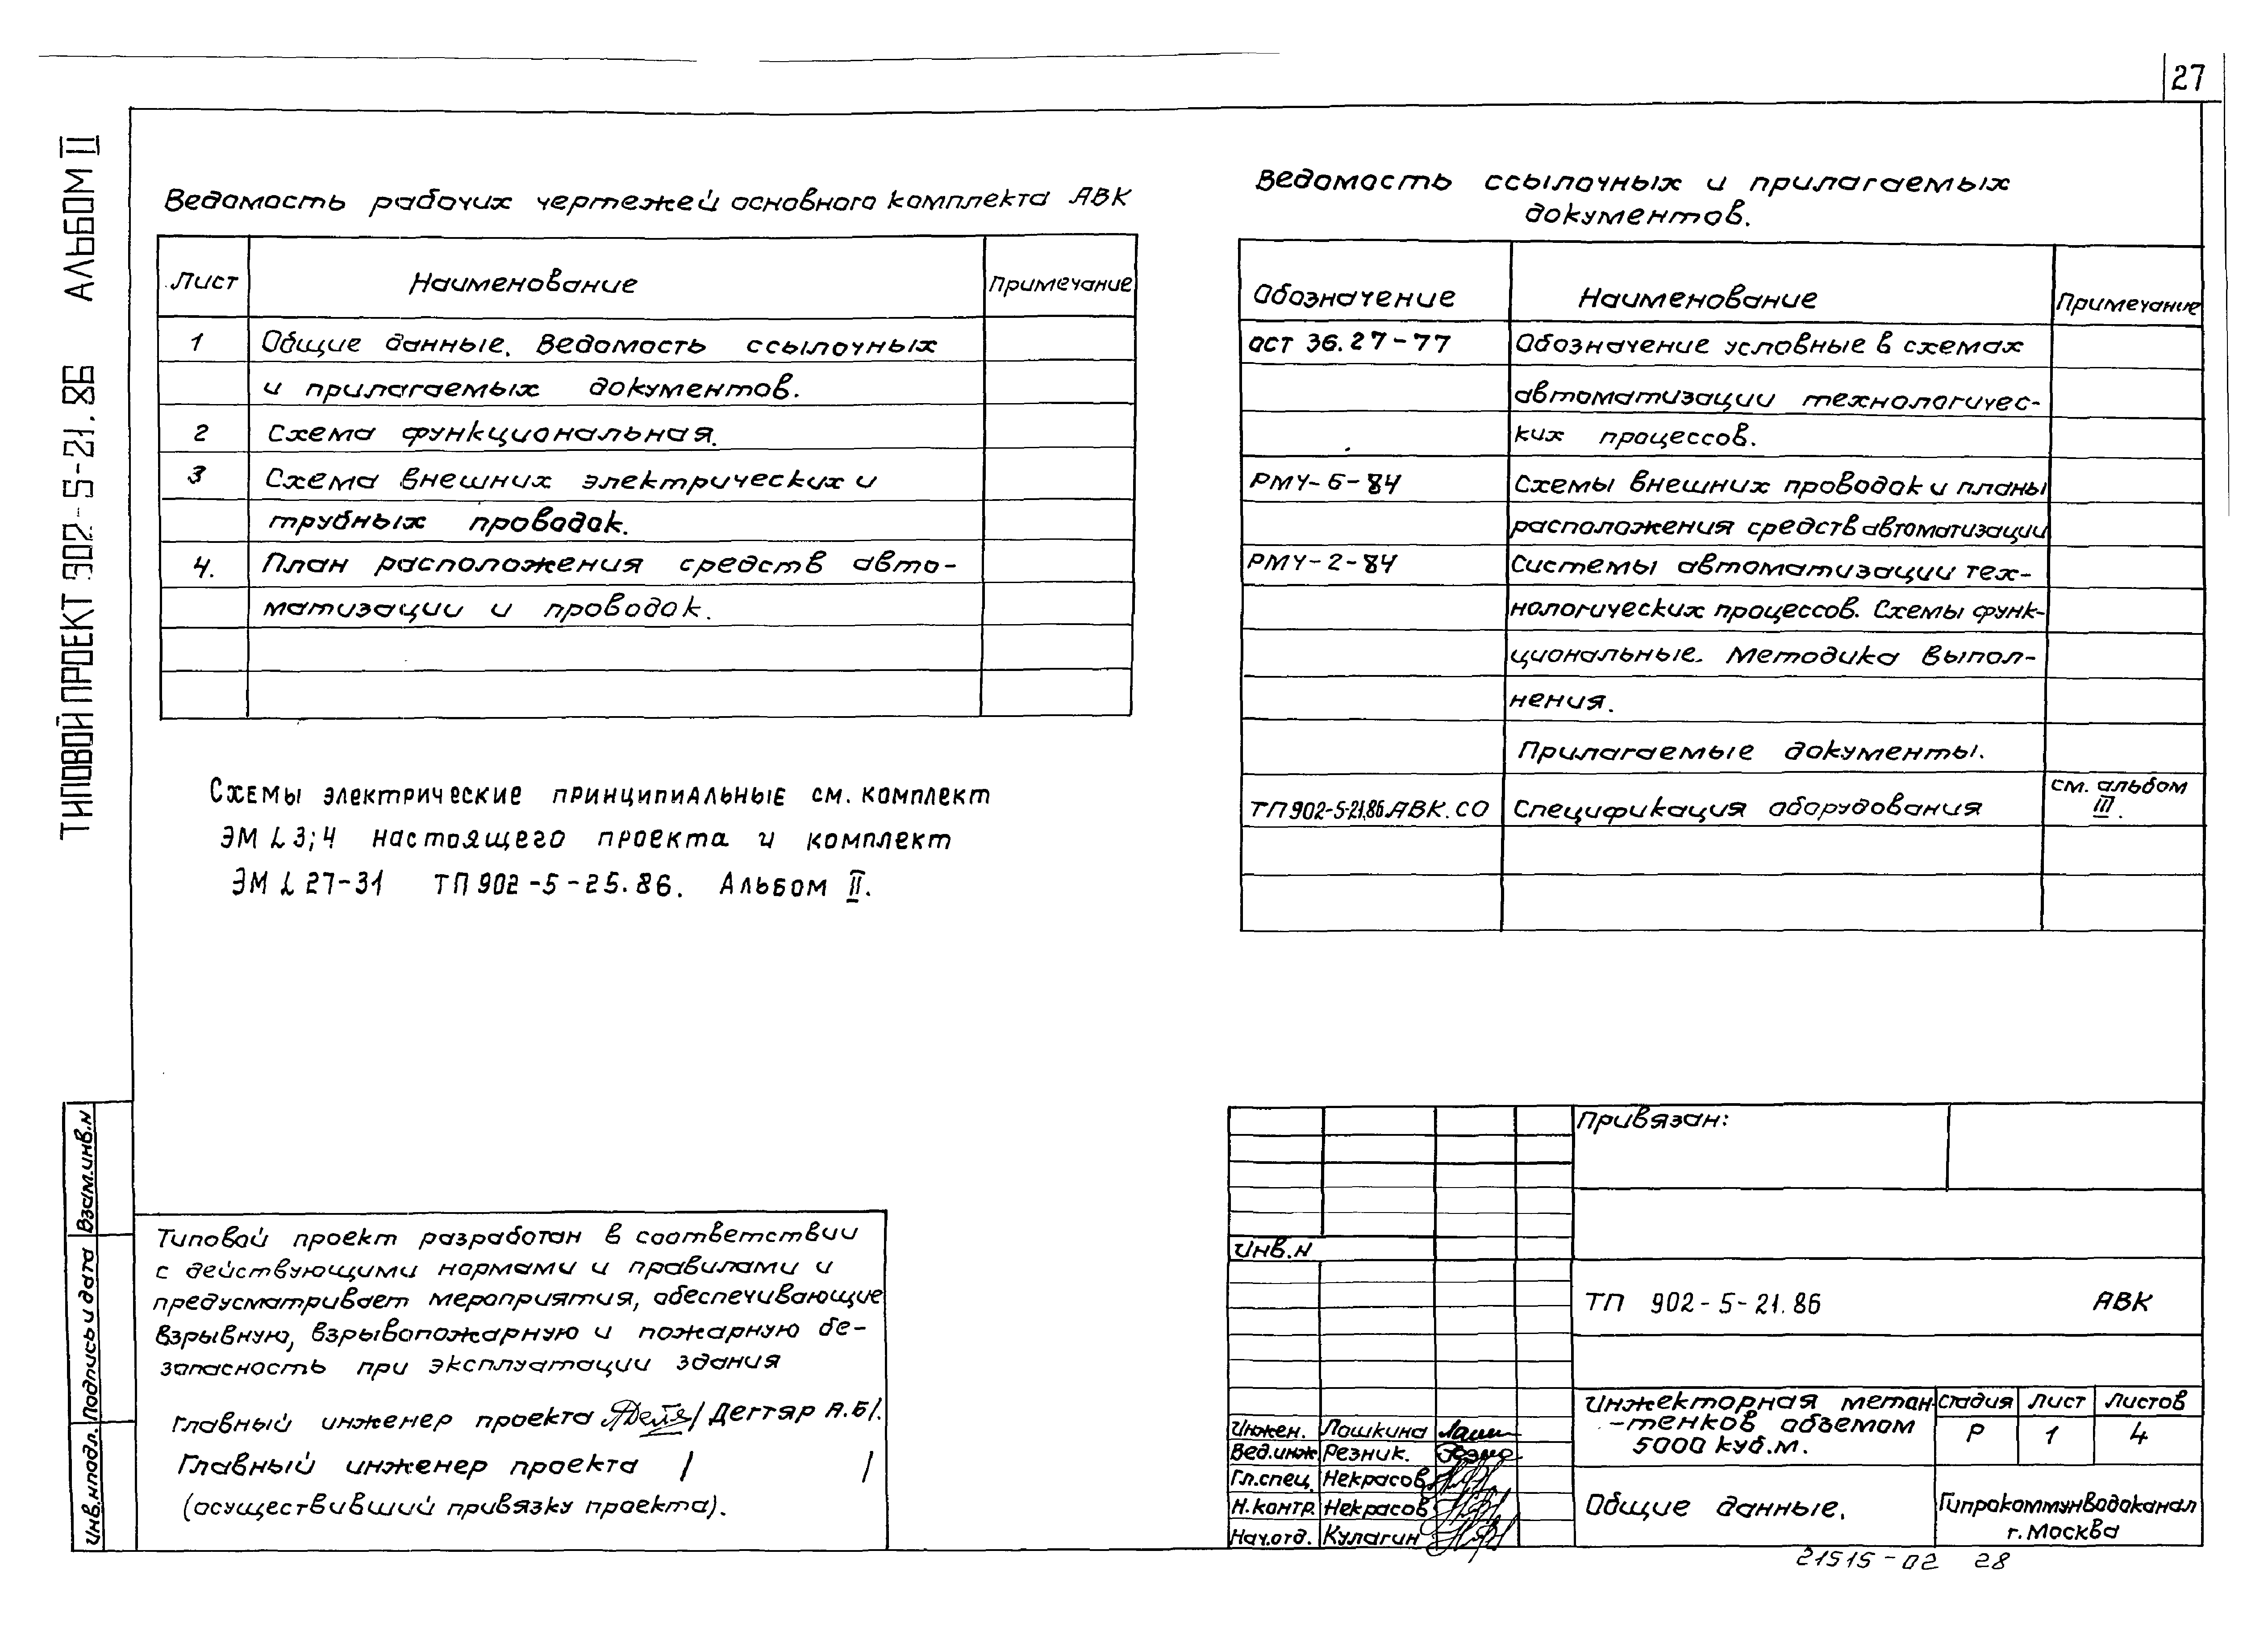 27
ТИПОВОЙ ПРОЕКТ 902-5-21.86 АЛЬБОМ II
Ведомость рабочих чертежей основного комплекта АВК
Лист Наименование Примечание
1 Общие данные. Ведомость ссылочных
и прилагаемых документов.
2 Схема функциональная.
3 Схема внешних электрических и
трубных проводок.
4. План расположения средств авто-
матизации и проводок.
Схемы электрические принципиальные см. комплект
ЭМ L 3;4 настоящего проекта и комплект
ЭМ L 27-31 ТП 902-5-25.86. Альбом II.
Ведомость ссылочных и прилагаемых
документов.
Обозначение Наименование Примечание
ОСТ 36.27-77 Обозначение условные в схемах
автоматизации технологичес-
ких процессов.
РМ4-6-84 Схемы внешних проводок и планы
расположения средств автоматизации
РМ4-2-84 Системы автоматизации тех-
нологических процессов. Схемы функ-
циональные. Методика выпол-
нения.
Прилагаемые документы.
ТП902-5-21.86 АВК.СО Спецификация оборудования см. альбом
III.
Взам.инв.н
Подпись и дата
Инв.нподл.
Типовой проект разработан в соответствии
с действующими нормами и правилами и
предусматривает мероприятия, обеспечивающие
взрывную, взрывопожарную и пожарную бе-
запасность при эксплуатации здания
Главный инженер проекта / Дегтяр А.Б/.
Главный инженер проекта / /
(осуществивший привязку проекта).
Привязан:
Инв.н
ТП 902-5-21.86 АВК
Инжекторная метан
-тенков объемом
5000 куб.м.
Стадия Лист Листов
Р 1 4
Инжен. Лошкина
Вед.инж Резник.
Гл.спец. Некрасов
Н.контр. Некрасов
Нач.отд. Кулагин
Общие данные.
Гипрокоммунводоканал
г. Москва
21515-02 28